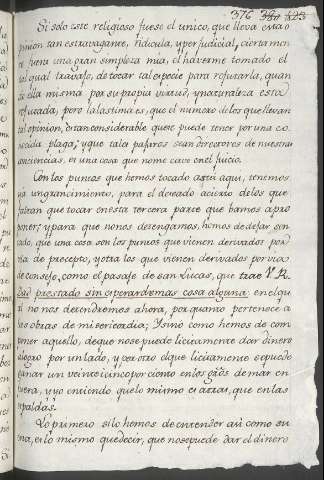 376 323
Si solo este religioso fuese el unico, que lleva esta o
pinion tan estravagante, ridicula, y perjudicial, ciertamen
te fuera una gran simpleza mia, el haverme tomado el
tal qual travajo, de tocar tal especie para refutarla, quan
do ella misma por su propia virtud, y naturaleza esta
refutada, pero la lastima es, que el numero de los que llevan
tal opinion, es tan considerable que se puede tener por una co
nocida plaga; y que tales pajaros sean directores de nuestras
consciencias, es una cosa que no me cave en el juicio.
Con los puntos que hemos tocado asta aqui, tenemos
ya un gran cimiento, para el deseado acierto de los que
faltan que tocar en esta tercera parte que bamos apro
poner; y para que no nos detengamos, hemos de dejar sen
tado, que una cosa son los puntos que vienen derivados por
via de precepto, y otra los que vienen derivados por via
de consejo, como el pasaje de san Lucas, que trae V. R.
Dad prestado sin esperar de mas cosa alguna: en el qu
al no nos detendremos ahora, por quanto pertenece a
las obras de misericordia; Y sino como hemos de com
poner aquello, de que no se puede licitamente dar dinero
a logro por un lado, y por otro el que licitamente se puede
ganar un veinte i cinco por ciento en los de mar en
fuera, y yo entiendo que lo mismo es atras, que en las
espaldas.
Lo primero si lo hemos de entender asi como su
ena, es lo mismo que decir, que no se puede dar el dinero